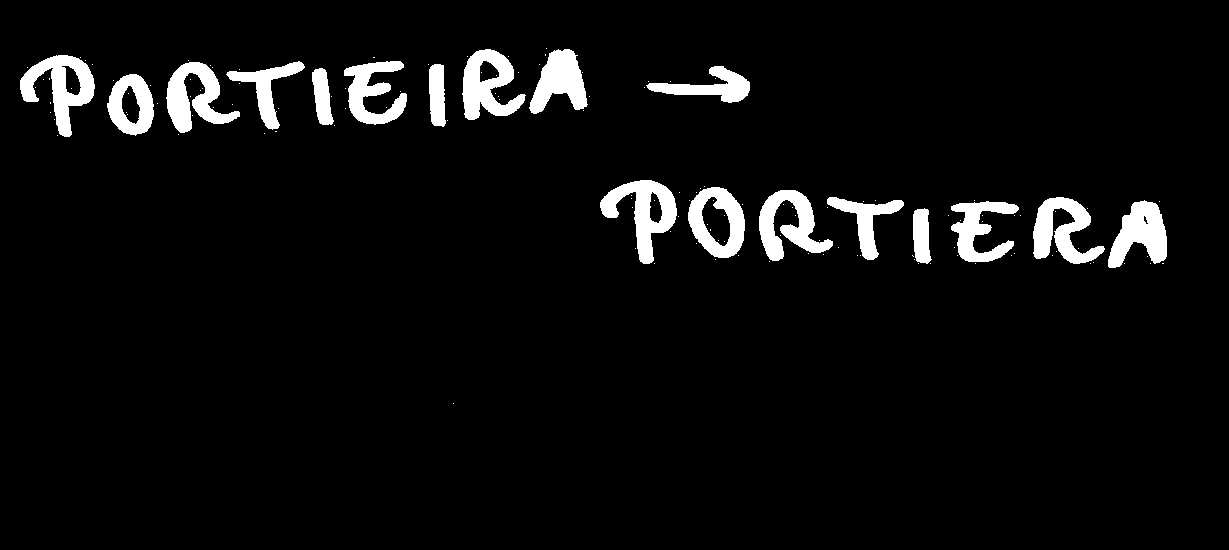 PORTIEIRA →
PORTIERA